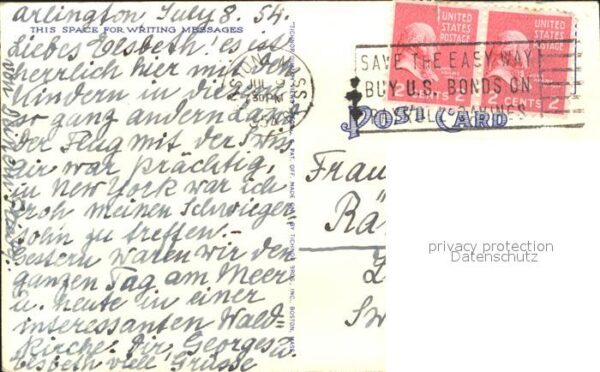 Arlington July 8. 54.
THIS SPACE FOR WRITING MESSAGES
Liebes Elsbeth! es ist
herrlich hier mit den
Kindern in dieser
so ganz andern
Der Flug mit der Swiss
air war prächtig,
in New York war ich
froh meinen Schwieger
sohn zu treffen.
Gestern waren wir den
ganzen Tag am Meer
u. heute in einer
interessanten Wald-
Kirche. Dir, Georges u
Elsbeth viele Grüsse
von Deiner
UNITED STATES POSTAGE
UNITED STATES POSTAGE
2 CENTS 2
CENTS 2
JUL
MASS
SAVE THE EASY WAY
BUY U.S. BONDS ON
PAYROLL SAVINGS
POST CARD
Frau
Rä
Z
Sw
privacy protection
Datenschutz